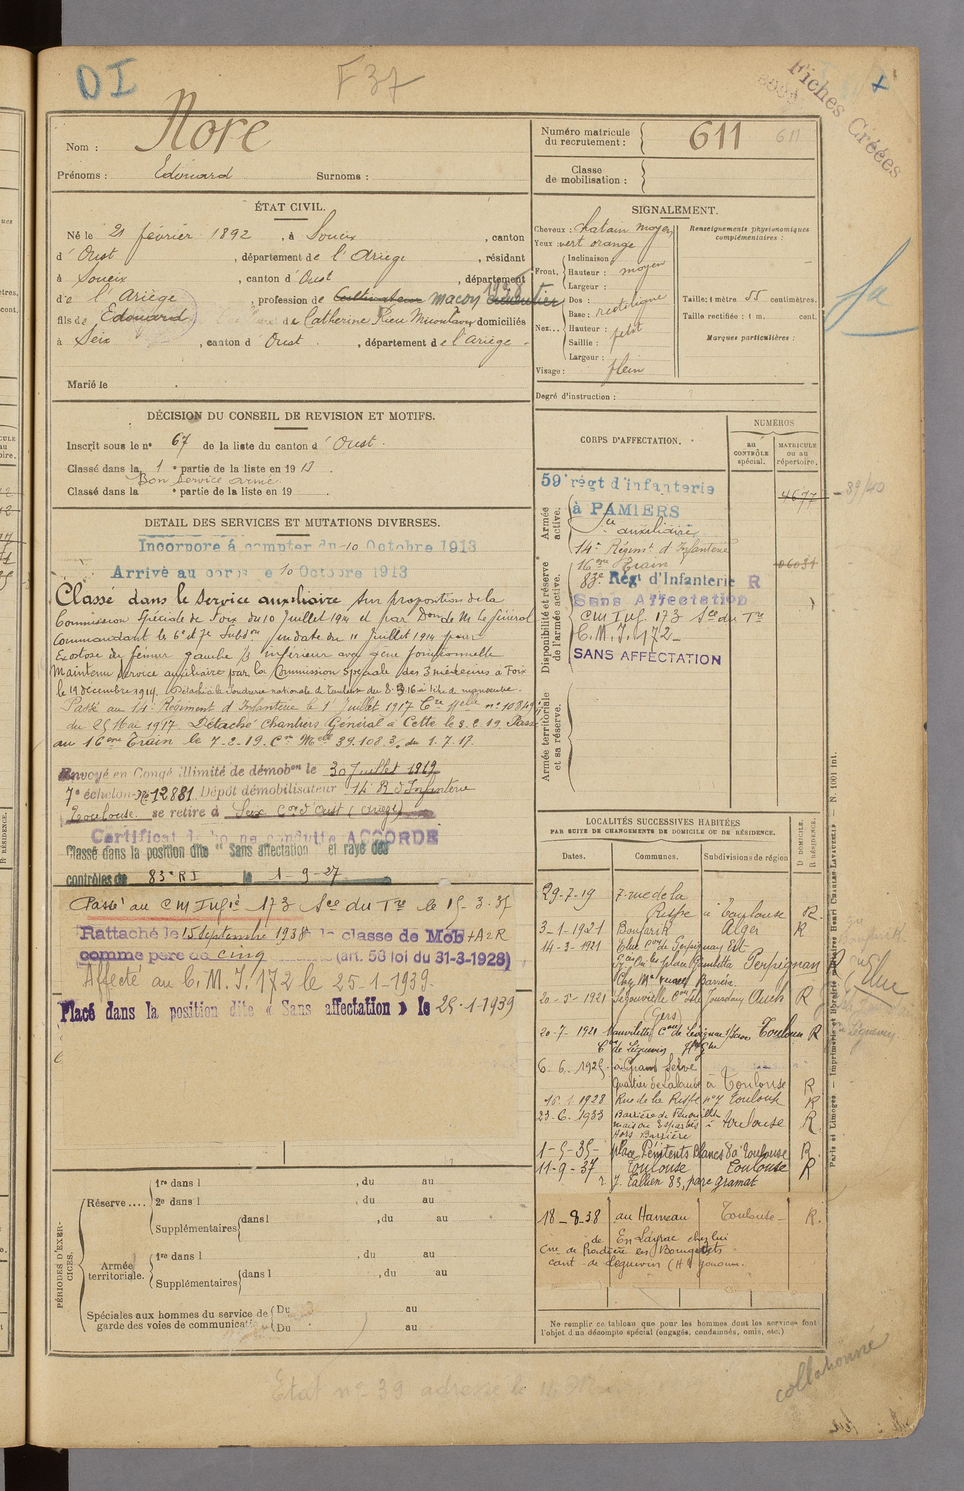 DI
F 37
Fiches Créées
Nom : Nore
Prénoms : Edouard Surnoms :
Numéro matricule du recrutement : 611 611
Classe de mobilisation :
ÉTAT CIVIL.
Né le 21 février 1892, à Soueix, canton
d'Oust, département de l'Ariège, résidant
à Soueix, canton d'Oust, département
de l'Ariège, profession de Cultivateur maçon
fils de Edouard de Catherine Rieu domiciliés
à Seix, canton d'Oust, département de l'Ariège
Marié le
SIGNALEMENT.
Cheveux : chatain moyen
Yeux : vert orange
Front. Inclinaison :
Hauteur : moyen
Largeur :
Nez... Dos : rectiligne
Base :
Hauteur : petit
Saillie :
Largeur :
Visage : plein
Renseignements physionomiques complémentaires :
Taille : 1 mètre 55 centimètres.
Taille rectifiée : 1 m. cent.
Marques particulières :
Degré d'instruction :
DÉCISION DU CONSEIL DE REVISION ET MOTIFS.
Inscrit sous le n° 67 de la liste du canton d'Oust.
Classé dans la 1e partie de la liste en 1913.
Bon service armé
Classé dans la e partie de la liste en 19
DETAIL DES SERVICES ET MUTATIONS DIVERSES.
Incorporé à compter du 10 Octobre 1913
Arrivé au corps le 10 Octobre 1913
Classé dans le service auxiliaire sur proposition de la
Commission Spéciale de Foix du 10 Juillet 1914 et par Don de M. le Général
Commandant le 6e d 7e Subdon en date du 11 Juillet 1914 pour
Exostose du fémur gauche 1/3 inférieur avec gêne fonctionnelle
Maintenu service auxiliaire par la Commission Spéciale des 3 médecins à Foix
le 19 Decembre 1914. Détaché à la Poudrerie nationale de Toulouse du 8.3.16 à titre de manœuvre.
Passé au 14e Régiment d'Infanterie le 1er Juillet 1917
du 25 Mai 1917. Détaché Chantiers Général à Cette le 3.2.19. Passé
au 16eme Train le 7.2.19. Cre Melle 39.108 3/ du 1.7.17.
Envoyé en Congé illimité de démobon le 30 Juillet 1919
7e échelon - No 12881 Dépôt démobilisateur 14e R d'Infanterie
Toulouse. se retire à Seix Con d'Oust (Ariège)
Certificat de bonne conduite ACCORDÉ
Classé dans la position dite "Sans affectation" et rayé des
contrôles du 83e RI le 1-9-27
Passé au C M Infie 173 Sce du Tre le 15-3-35
Rattaché le 15 septembre 1938 à la classe de Mob
comme père de cinq (art. 58 loi du 31-3-1928)
Affecté au C. M. I. 172 le 25-1-1939
Placé dans la position dite « Sans affectation » le 25-1-1939
CORPS D'AFFECTATION.
NUMÉROS
au CONTRÔLE spécial.
MATRICULE ou au répertoire.
Armée active.
59e régt d'infanterie
à PAMIERS
Sce auxiliaire
4677
39/40
Disponibilité et réserve de l'armée active.
14e Régimt d'Infanterie
16eme Train
83e Régt d'Infanterie R
Sans Affectation
CM Inf. 173 Sce du Tre
C. M. I. 172
SANS AFFECTATION
Armée territoriale et sa réserve.
LOCALITÉS SUCCESSIVES HABITÉES
PAR SUITE DE CHANGEMENTS DE DOMICILE OU DE RÉSIDENCE.
Dates. Communes. Subdivisions de région D DOMICILE. R RÉSIDENCE.
29-7-19 7 rue de la
Rispe à Toulouse R.
3-1-1921 Boufarik Alger R
14-3-1921 Elne Con de Perpignan Est
place Gambetta Perpignan R
20-5-1921 Ségoufielle Con Isle Jourdain Auch R
(Gers)
20-7-1921 Con de Lévignac s/Save Toulouse R
6-6-1925 à Grand Selve
Quartier de Lalande à Toulouse R
1928 Rue de la Rispe no 7 Toulouse R
23-6-1933 Barrière de
maison Esparbès à Toulouse R
Hors Barrière
1-5-35 place Pénitents Blancs 8 à Toulouse R
11-9-37 Toulouse Toulouse R
r J. Tallien 83, parc gramat
18-8-38 au Hameau Toulouse R.
de En Layrac chez lui
cant. de Léguevin (H G
Elne
PÉRIODES D'EXERCICES.
Réserve.... 1re dans l , du au
2e dans l , du au
Supplémentaires dans l , du au
Armée territoriale. 1re dans l , du au
Supplémentaires dans l , du au
Spéciales aux hommes du service de garde des voies de communication Du au
Du au
Ne remplir ce tableau que pour les hommes dont les services font
l'objet d'un décompte spécial (engagés, condamnés, omis, etc.)
Paris et Limoges. — Imprimerie et librairie militaires Henri CHARLES-LAVAUZELLE — N. 1001 int.
collationné
Etat no 39 adressé le